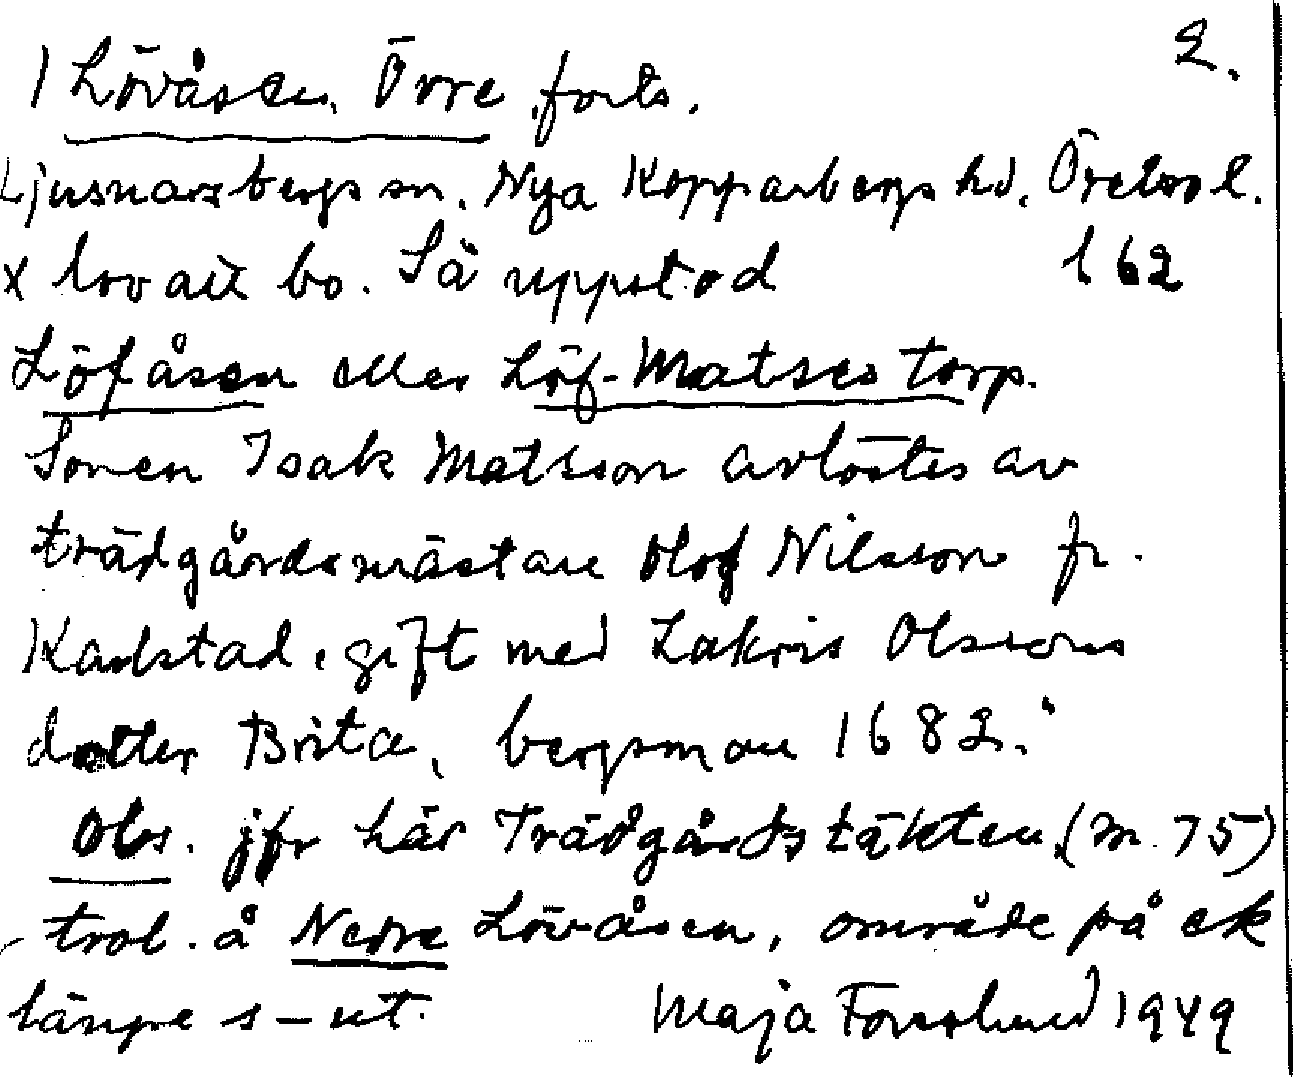 2.
1 Lövåsen, Övre, forts.
Ljusnarsbergs sn. Nya Kopparbergs hd. Örebro l.
x lov att bo. Så uppstod l 62
Löfåsen eller Löf-Matses torp.
Sonen Isak Matsson avlöstes av
trädgårdsmästare Olof Nilsson fr.
Karlstad, gift med Lakris Olssons
dotter Brita, bergsman 1682."
Obs. jfr här Trädgårdstäkten (m. 75)
trol. å Nedre Lövåsen, område på ek
länge s-ut. Maja Forsslund 1949